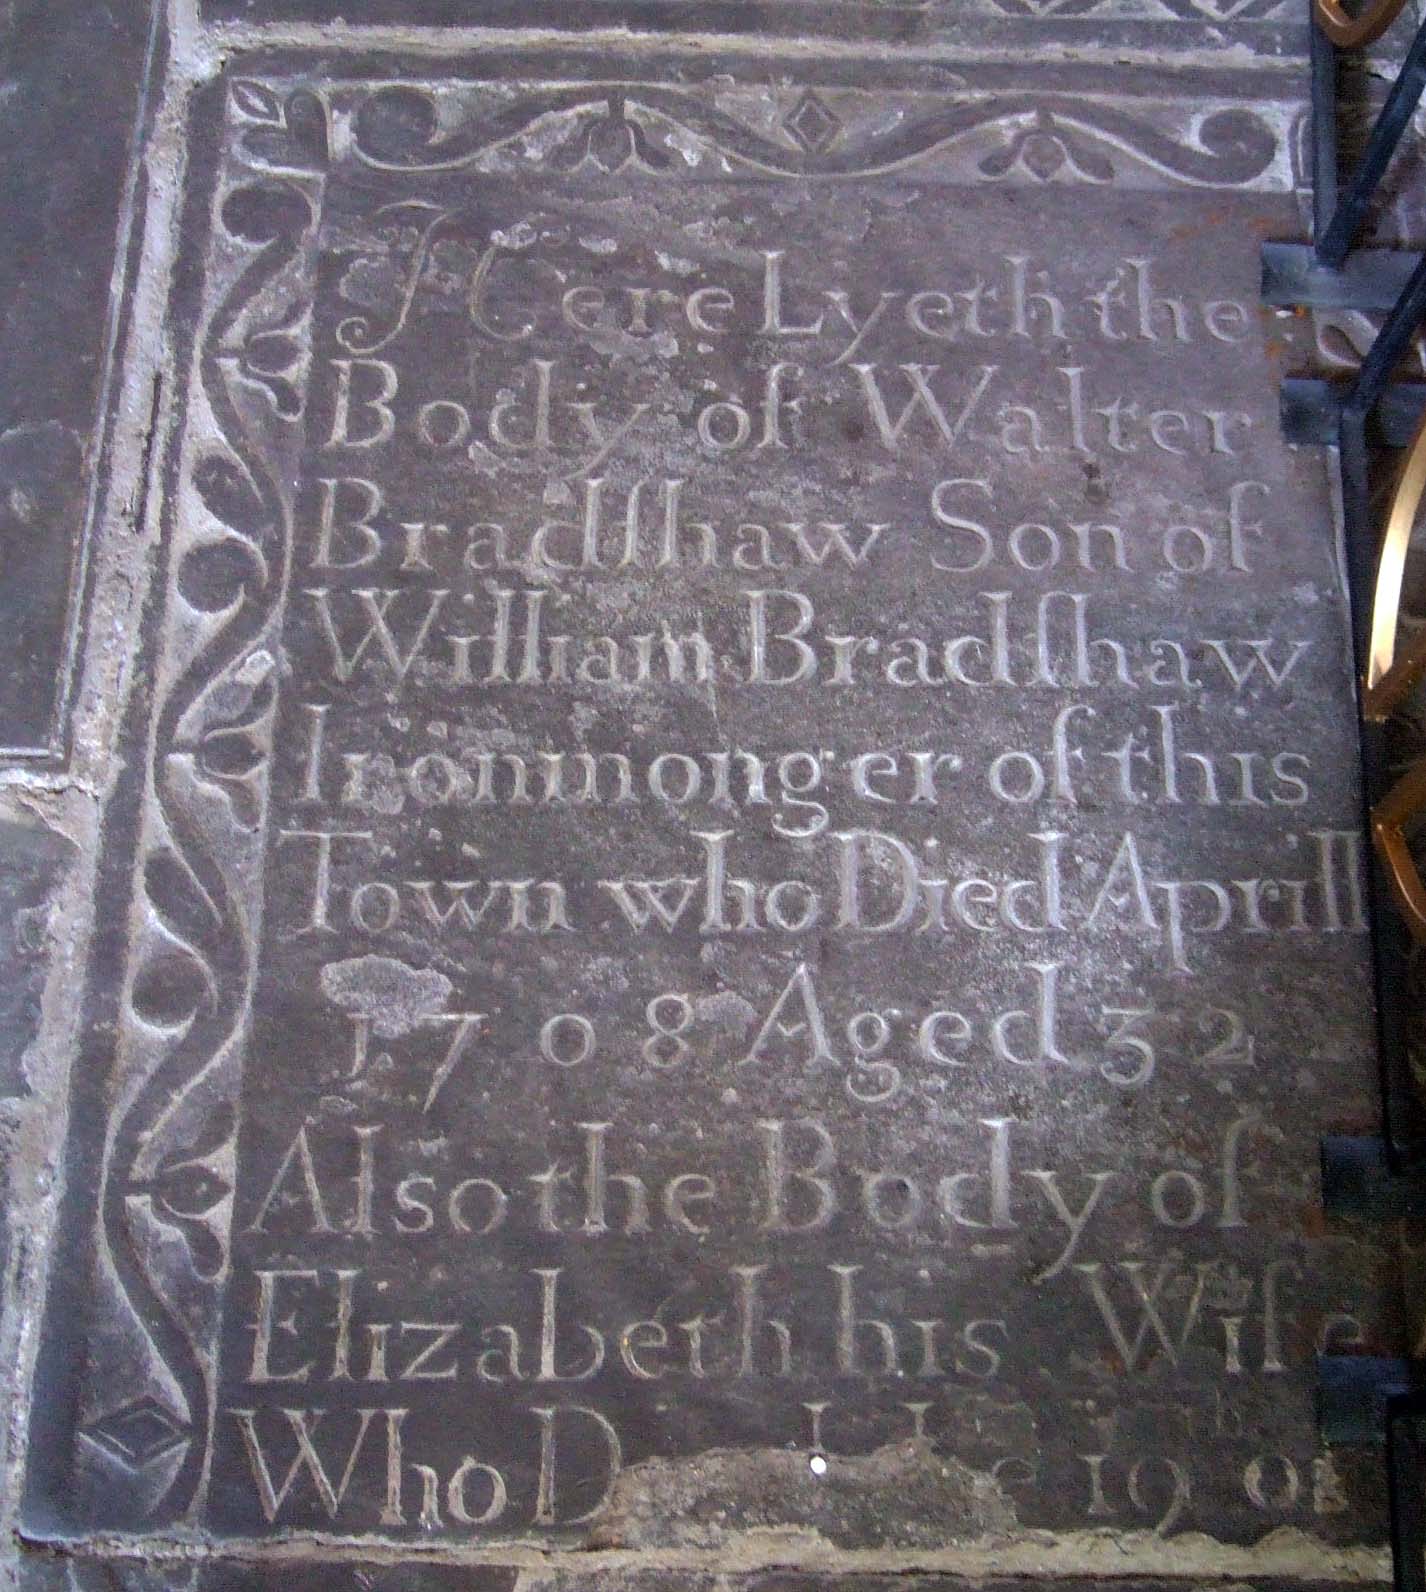 Here Lyeth the
Body of Walter
Bradſhaw Son of
William Bradſhaw
Ironmonger of this
Town who Died Aprill
1708 Aged 32
Also the Body of
Elizabeth his Wife
Who 19th of